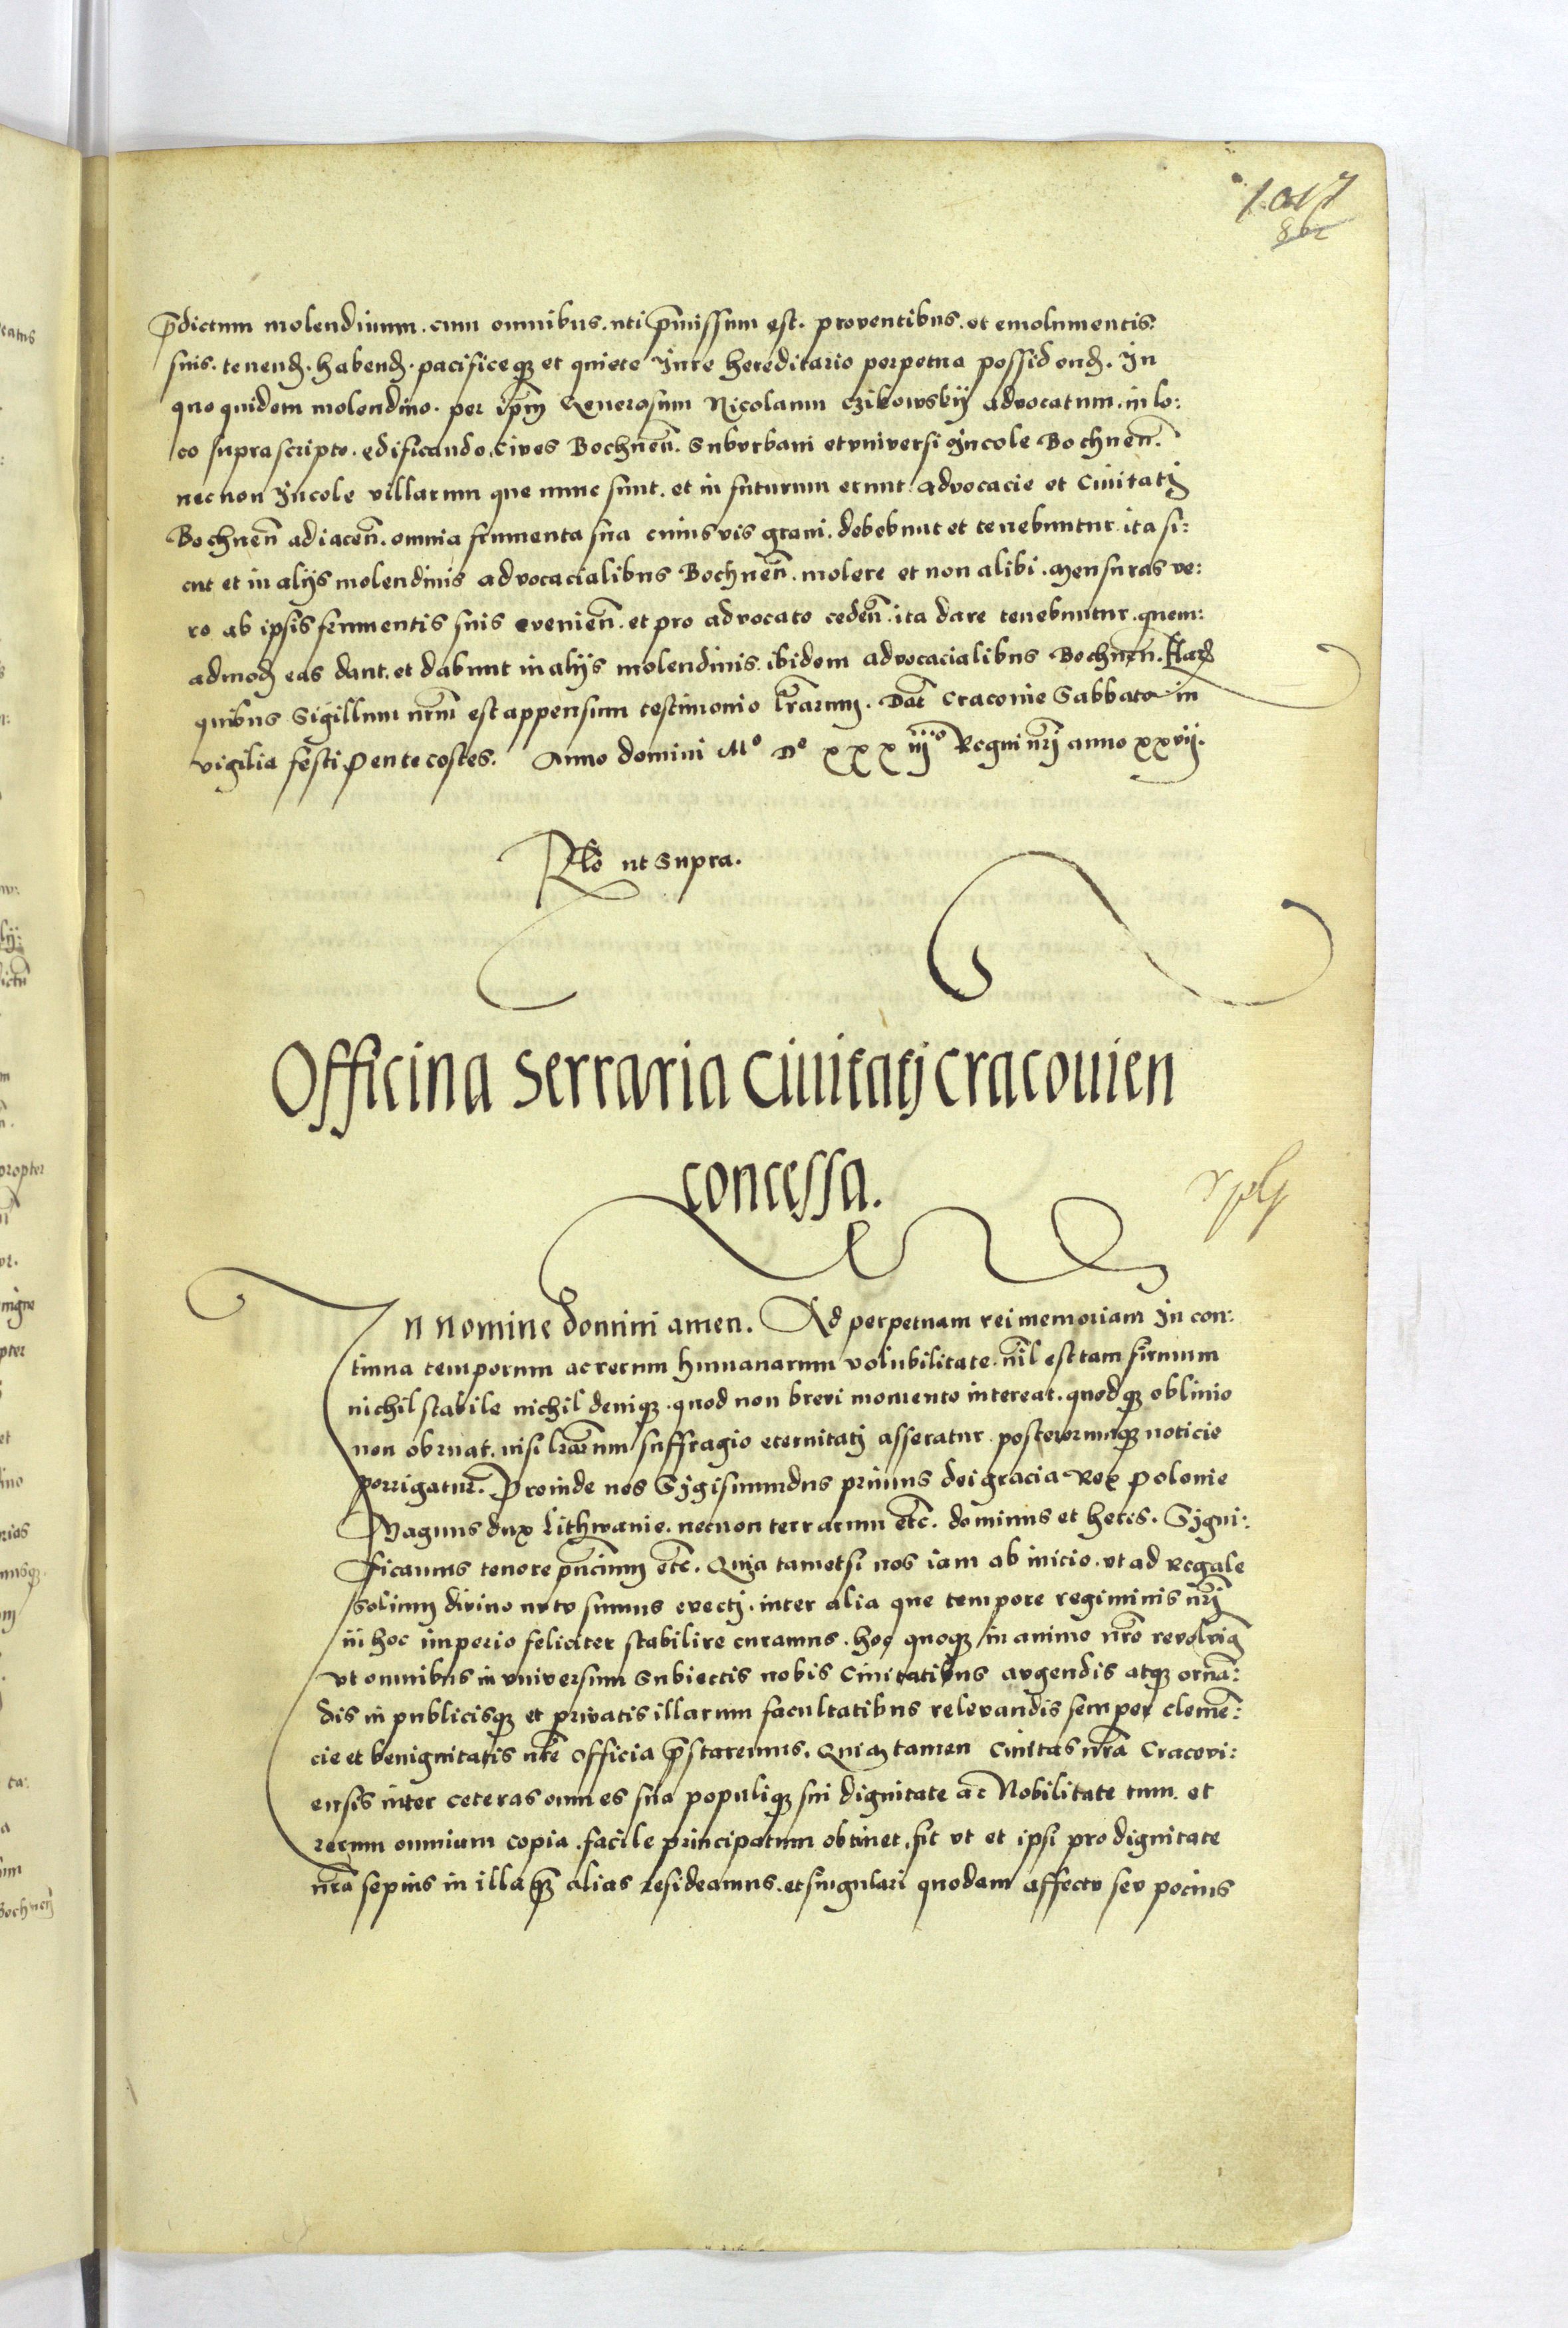 1017
862
p̄dictum molendinum. cum omnibus. uti p̄missum est. proventibus. et emolumentis:
suis. tenend. habend. pacificeqꝫ et quiete Jure hereditario perpetua possidend. In
quo quidem molendino. per ip̄m Generosum Nicolaum Czikowskij advocatum. in lo:
co suprascripto. edificando, Cives Bochnen̄. Suburbani et universi Jncole Bochnen̄.
nec non Jncole villarum que nunc sunt. et in futurum erunt. Advocacie et Civitatj
Bochnen̄ adiacen̄. omnia frumenta sua cuiusvis grani. debebunt et tenebuntur. ita si:
cut et in alijs molendinis advocacialibus Bochnen̄. molere et non alibi. Mensuras ve:
ro ab ipsis frumentis suis evenien̄. et pro advocato ceden̄. ita dare tenebuntur. quem:
admod eas dant. et dabunt in alijs molendinis. ibidem advocacialibus Bochnen̄. Har
quibus Sigillum nr̄m est appensum testimonio lr̄arum. Dat̄ Cracovie Sabbato in
vigilia festi Pentecostes. Anno domini Mº Dº xxxiijº Regni nr̄j anno xxvij.
Rlo ut supra.
Officina Serraria Civitatj Cracovien
concessa.
In Nomine Domini amen. Ad perpetuam rei memoriam In con:
tinua temporum ac rerum humanarum volubilitate. nīl est tam firmum
nichil stabile nichil deniqꝫ. quod non brevi momento intereat. quodqꝫ oblivio
non obruat. nisi lr̄arum suffragio eternitatj asseratur. posterorumqꝫ noticie
porrigatur. Proinde nos Sigismundus primus dei gracia Rex Polonie
Magnus dux Lithwanie. necnon terrarum etc̄. dominus et heres. Signi:
ficamus tenore pn̄cium etc̄. Quia tametsi nos iam ab inicio. ut ad Regale
Solium divino nutu sumus evectj. inter alia que tempore regiminis nr̄j
in hoc imperio feliciter stabilire curamus. hoc quoqꝫ in animo nr̄o revolvim̄
ut omnibus in universum Subiectis nobis Civitatibus augendis atqꝫ ornā:
dis in publicisqꝫ et privatis illarum facultatibus relevandis semper clemē:
cie et benignitatis nr̄e officia p̄staremus. Quia tamen Civitas nr̄a Cracovi:
ensis inter ceteras omnes sua populiqꝫ sui dignitate ac Nobilitate tum. et
rerum omnium copia. facile principatum obtinet, fit ut et ipsi pro dignitate
nr̄a sepius in illa qꝫ alias resideamus. et singulari quodam affectu seu pocius